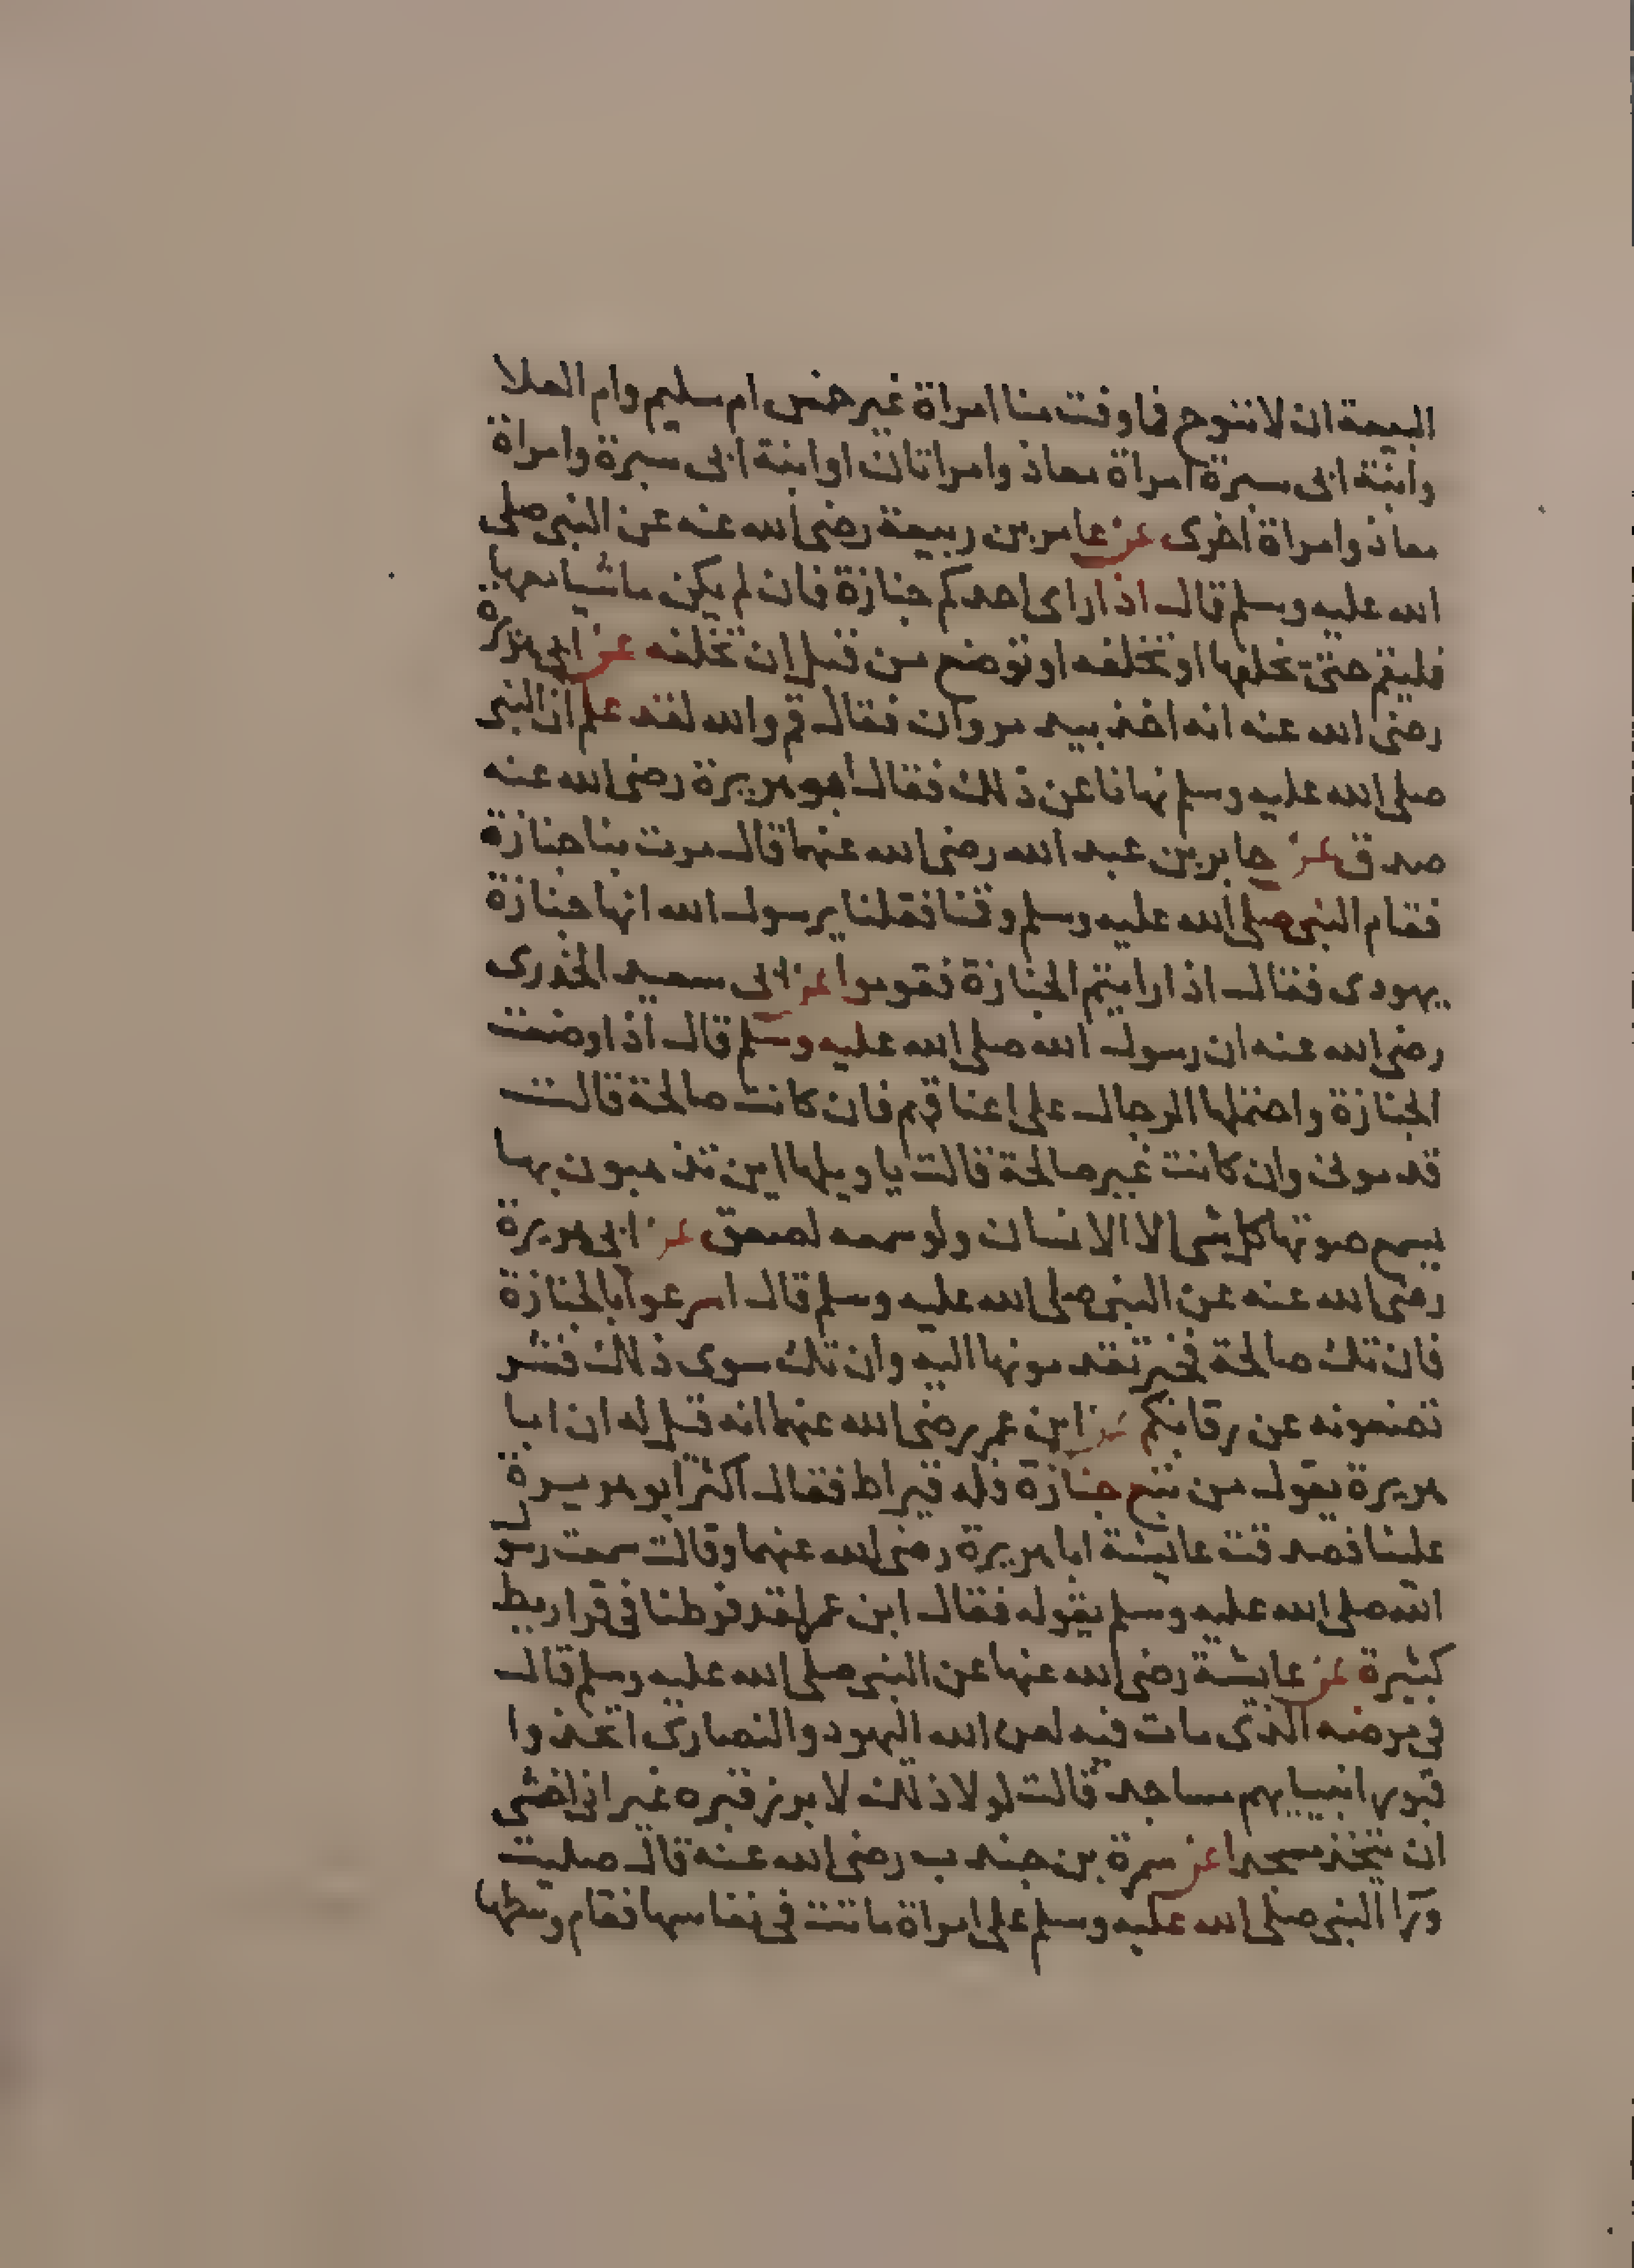 البيعة ان لا ننوح فما وفت منا امراة غير خمس ام سليم وام العلا
وابنة ابى سبرة امراة معاذ وامراتان او ابنة ابى سبرة وامراة
معاذ وامراة اخرى عن عامر بن ربيعة رضى الله عنه عن النبى صلى
الله عليه وسلم قال اذا راى احدكم جنازة فان لم يكن ماشيا معها
فليقم حتى تخلفها او تخلفه او توضع من قبل ان تخلفه عن ابى هريرة
رضى الله عنه انه اخذ بيد مروان فقال قم والله لقد علم ان النبى
صلى الله عليه وسلم نهانا عن ذلك فقال ابو هريرة رضى الله عنه
صدق عن جابر بن عبد الله رضى الله عنهما قال مرت بنا جنازة
فقام النبى صلى الله عليه وسلم وقمنا فقلنا يرسول الله انها جنازة
يهودى فقال اذا رايتم الجنازة فقوموا عن ابى سعيد الخدرى
رضى الله عنه ان رسول الله صلى الله عليه وسلم قال اذا وضعت
الجنازة واحتملها الرجال على اعناقهم فان كانت صالحة قالت
قدمونى وان كانت غير صالحة قالت يا ويلها اين تذهبون بها
يسمع صوتها كل شى الا الانسان ولو سمعه لصعق عن ابى هريرة
رضى الله عنه عن النبى صلى الله عليه وسلم قال اسرعوا بالجنازة
فان تك صالحة فخير تقدمونها اليه وان تك سوى ذلك فشر
تضعونه عن رقابكم عن ابن عمر رضى الله عنهما انه قيل له ان ابا
هريرة يقول من تبع جنازة فله قيراط فقال اكثر ابو هريرة
علينا فصدقت عايشة ابا هريرة رضى الله عنهما وقالت سمعت رسول
الله صلى الله عليه وسلم يقوله فقال ابن عمر لقد فرطنا فى قراريط
كثيرة عن عايشة رضى الله عنها عن النبى صلى الله عليه وسلم قال
فى مرضه الذى مات فيه لعن الله اليهود والنصارى اتخذوا
قبور انبيايهم مساجد قالت لولا ذلك لابرز قبره غير انى اخشى
ان يتخذ مسجدا عن سمرة بن جندب رضى الله عنه قال صليت
ورا النبى صلى الله عليه وسلم على امراة ماتت فى نفاسها فقام وسطها